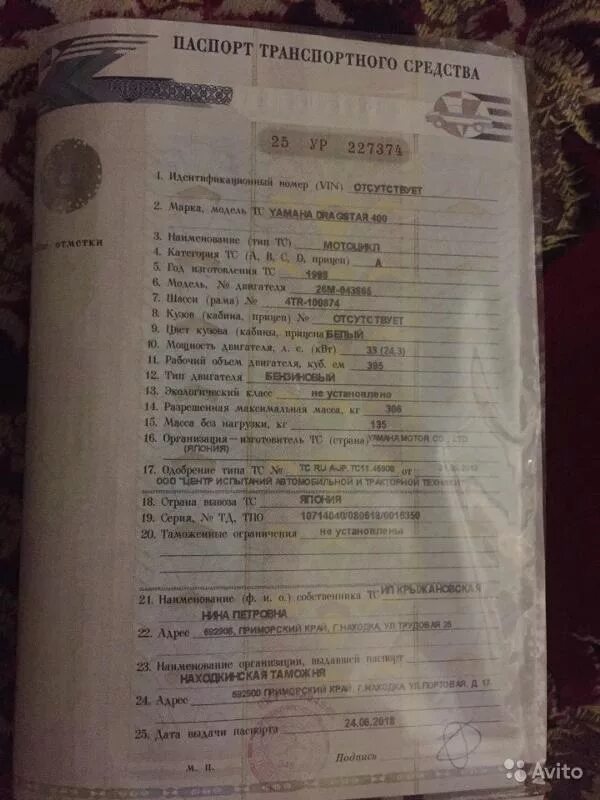 ПАСПОРТ ТРАНСПОРТНОГО СРЕДСТВА
25 УР 227374
1. Идентификационный номер (VIN) ОТСУТСТВУЕТ
2. Марка, модель ТС YAMAHA DRAGSTAR 400
отметки
3. Наименование (тип ТС) МОТОЦИКЛ
4. Категория ТС (А, В, С, D, прицеп) А
5. Год изготовления ТС 1998
6. Модель, № двигателя
7. Шасси (рама) № 4TR-100874
8. Кузов (кабина, прицеп) № ОТСУТСТВУЕТ
9. Цвет кузова (кабины, прицепа) БЕЛЫЙ
10. Мощность двигателя, л. с. (кВт) 33 (24,3)
11. Рабочий объем двигателя, куб. см 395
12. Тип двигателя БЕНЗИНОВЫЙ
13. Экологический класс не установлено
14. Разрешенная максимальная масса, кг 306
15. Масса без нагрузки, кг 135
16. Организация—изготовитель ТС (страна) YAMAHA MOTOR CO., LTD
(ЯПОНИЯ)
17. Одобрение типа ТС № от
ООО "ЦЕНТР ИСПЫТАНИЙ АВТОМОБИЛЬНОЙ И ТРАКТОРНОЙ ТЕХНИКИ"
18. Страна вывоза ТС ЯПОНИЯ
19. Серия, № ТД, ТПО 10714040/080618/0016350
20. Таможенные ограничения не установлены
21. Наименование (ф. и. о.) собственника ТС ИП КРЫЖАНОВСКАЯ
НИНА ПЕТРОВНА
22. Адрес 692906, ПРИМОРСКИЙ КРАЙ, Г.НАХОДКА, УЛ ТРУДОВАЯ
23. Наименование организации, выдавшей паспорт
НАХОДКИНСКАЯ ТАМОЖНЯ
24. Адрес 692900 ПРИМОРСКИЙ КРАЙ, Г.НАХОДКА УЛ.ПОРТОВАЯ, Д. 17
25. Дата выдачи паспорта 24.06.2018
м. п. Подпись
Avito